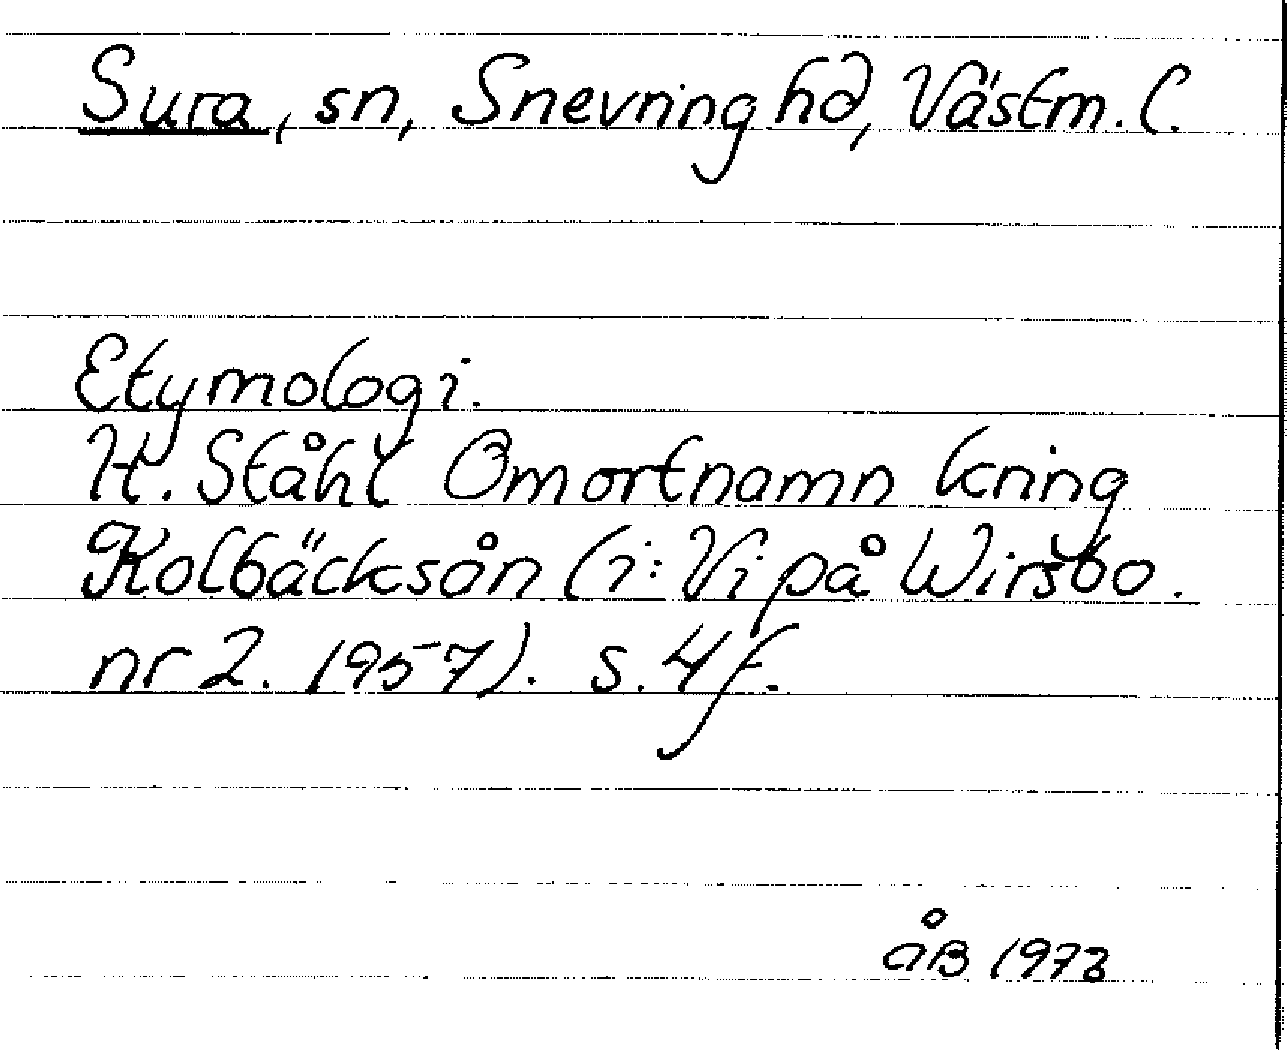 Sura, sn, Snevring hd, Västm. l.
Etymologi.
H. Ståhl Om ortnamn kring
Kolbäcksån (i: Vi på Wirsbo.
nr 2. 1957). s. 4 f.
ÅB 1973